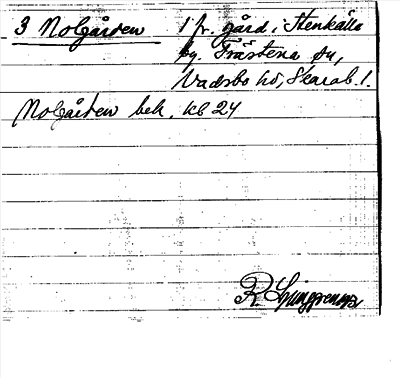 3 Nolgården 1 fr. gård i Stenkälla
by, Trästena sn,
Vadsbo hd, Skarab. l.
Nolgården bek. kl 24
R. Ljunggren